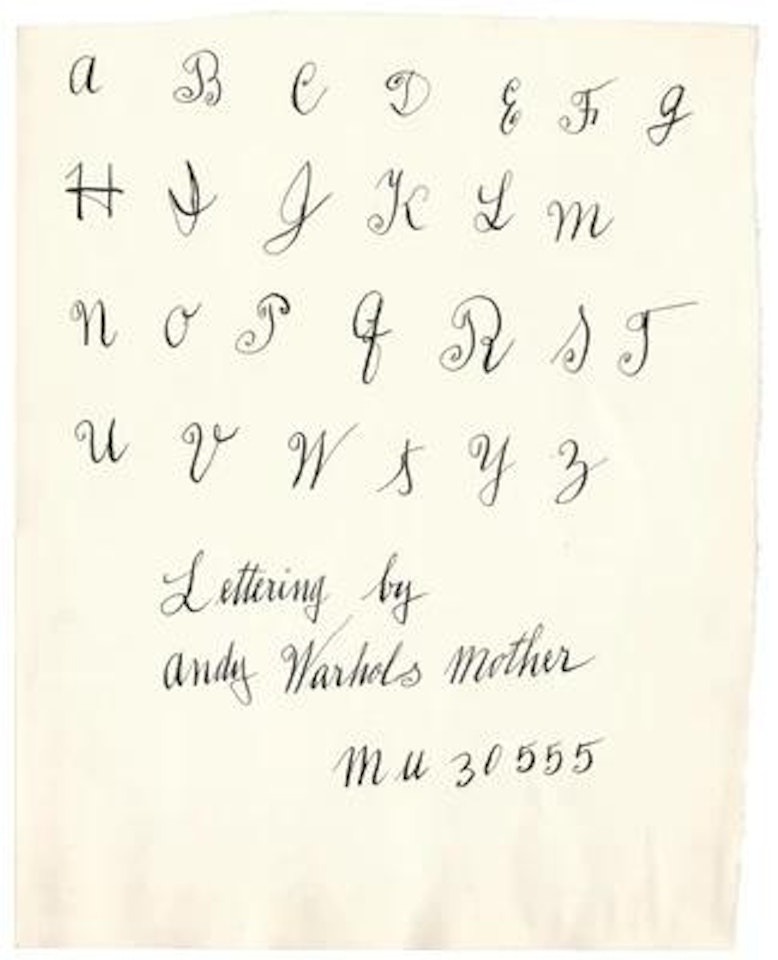 a B C D E F g
H I J K L m
n O P Q R S T
U V W X Y Z
Lettering by
andy Warhols mother
M U 30555